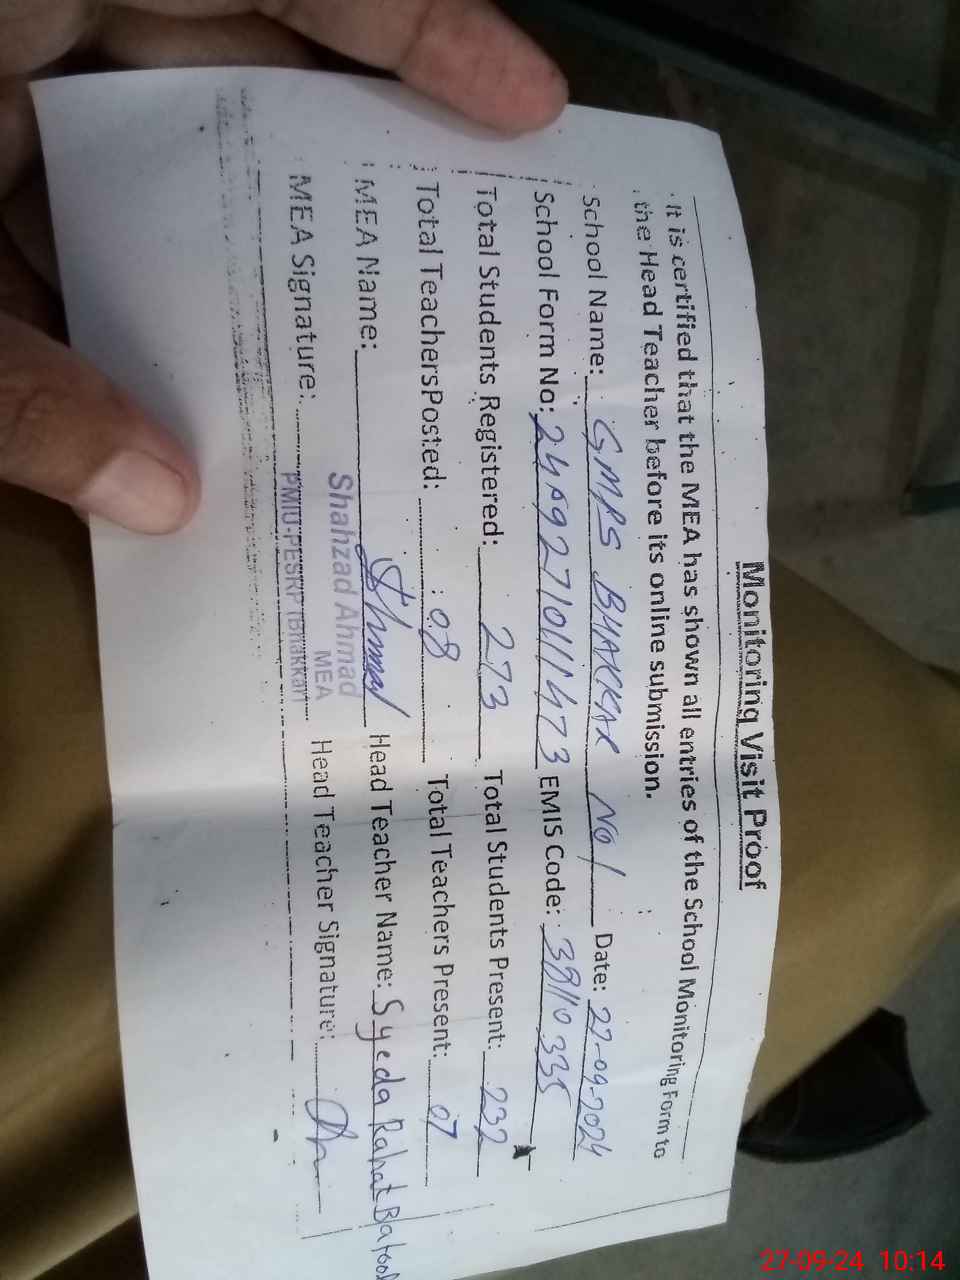 Monitoring Visit Proof
It is certified that the MEA has shown all entries of the School Monitoring Form to
the Head Teacher before its online submission.
School Name: GMPS BHAKKAR NO 1 Date: 27-09-2024
School Form No: 2409271011473 EMIS Code: 38110335
Total Students Registered: 273 Total Students Present: 232
Total TeachersPosted: 08 Total Teachers Present: 07
MEA Name: Head Teacher Name: Syeda Rahat Batool
Shahzad Ahmad
MEA
MEA Signature: PMIU-PESRP (Bhakkar) Head Teacher Signature:
27-09-24 10:14